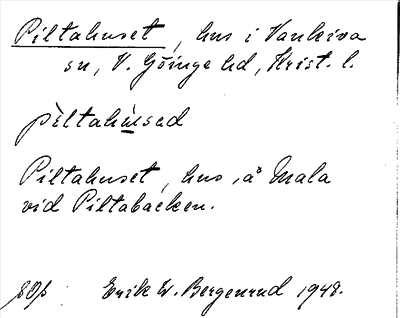 Piltahuset, hus i Vankiva
sn, V. Göinge hd, Krist. l.
pìltahùsad
Piltahuset, hus, å Mala
vid Piltabacken.
Erik W. Bergenrud 1948.